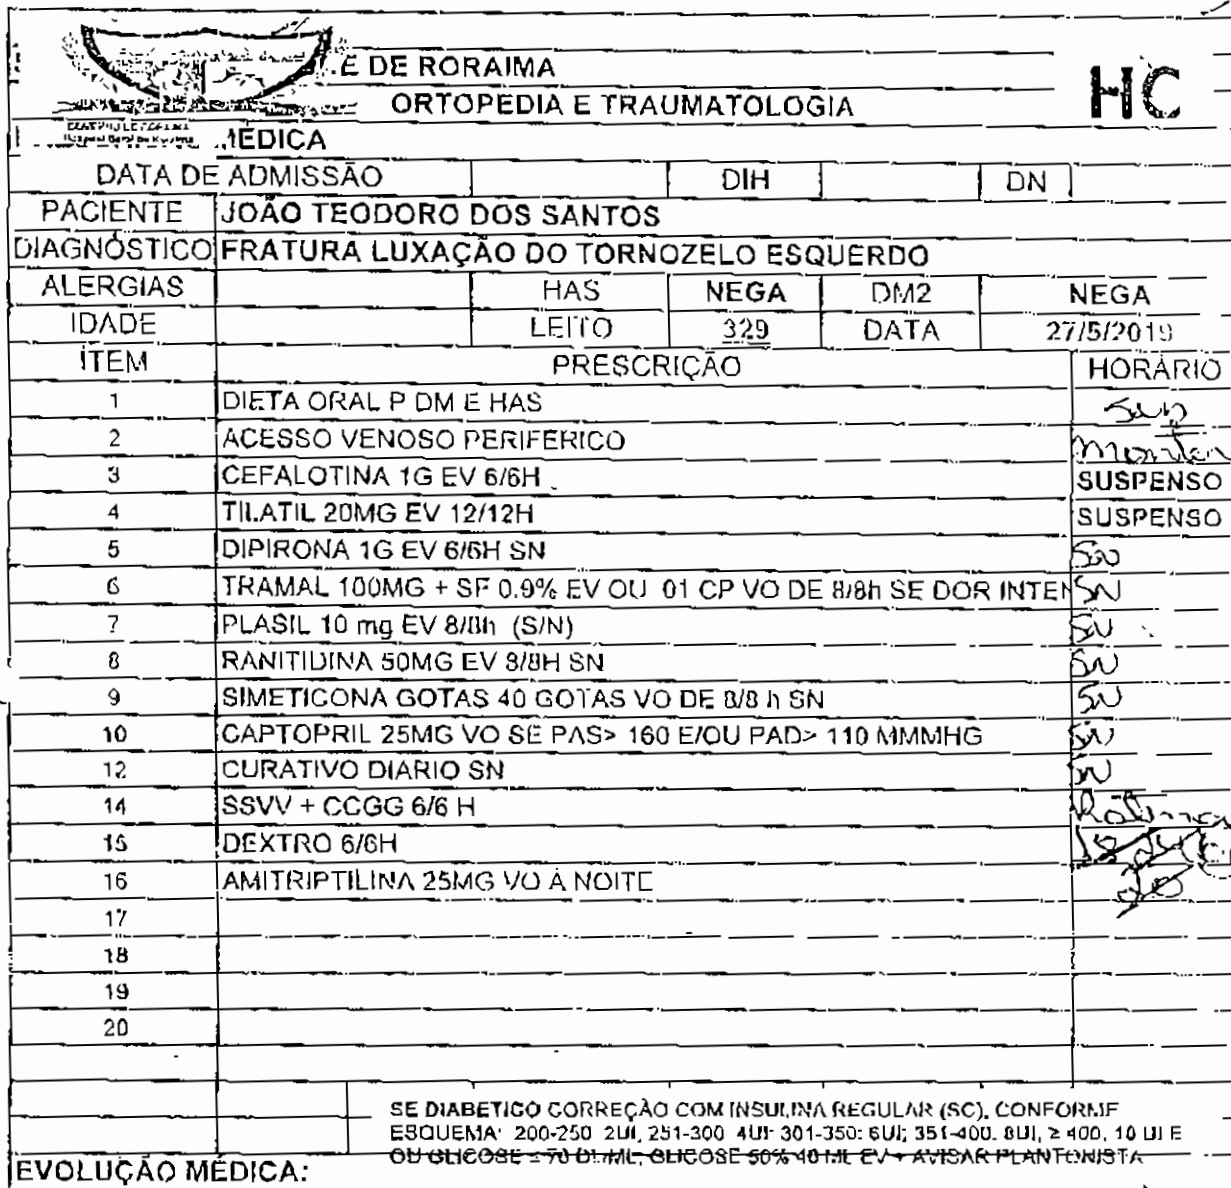 E DE RORAIMA
HC
ORTOPEDIA E TRAUMATOLOGIA
MÉDICA
DATA DE ADMISSÃO DIH DN
PACIENTE JOÃO TEODORO DOS SANTOS
DIAGNÓSTICO FRATURA LUXAÇÃO DO TORNOZELO ESQUERDO
ALERGIAS HAS NEGA DM2 NEGA
IDADE LEITO 329 DATA 27/5/2019
ITEM PRESCRIÇÃO HORÁRIO
1 DIETA ORAL P DM E HAS
2 ACESSO VENOSO PERIFÉRICO
3 CEFALOTINA 1G EV 6/6H SUSPENSO
4 TILATIL 20MG EV 12/12H SUSPENSO
5 DIPIRONA 1G EV 6/6H SN SN
6 TRAMAL 100MG + SF 0.9% EV OU 01 CP VO DE 8/8h SE DOR INTEN SN
7 PLASIL 10 mg EV 8/8h (S/N) SN
8 RANITIDINA 50MG EV 8/8H SN SN
9 SIMETICONA GOTAS 40 GOTAS VO DE 8/8 h SN SN
10 CAPTOPRIL 25MG VO SE PAS> 160 E/OU PAD> 110 MMMHG SN
12 CURATIVO DIARIO SN SN
14 SSVV + CCGG 6/6 H Rotina
15 DEXTRO 6/6H
16 AMITRIPTILINA 25MG VO À NOITE
17
18
19
20
SE DIABETICO CORREÇÃO COM INSULINA REGULAR (SC), CONFORME
ESQUEMA: 200-250 2UI, 251-300 4UI 301-350: 6UI; 351-400. 8UI, ≥ 400, 10 UI E
OU GLICOSE ≤ 70 DL/ML, GLICOSE 50% 40 ML EV + AVISAR PLANTONISTA
EVOLUÇÃO MÉDICA: